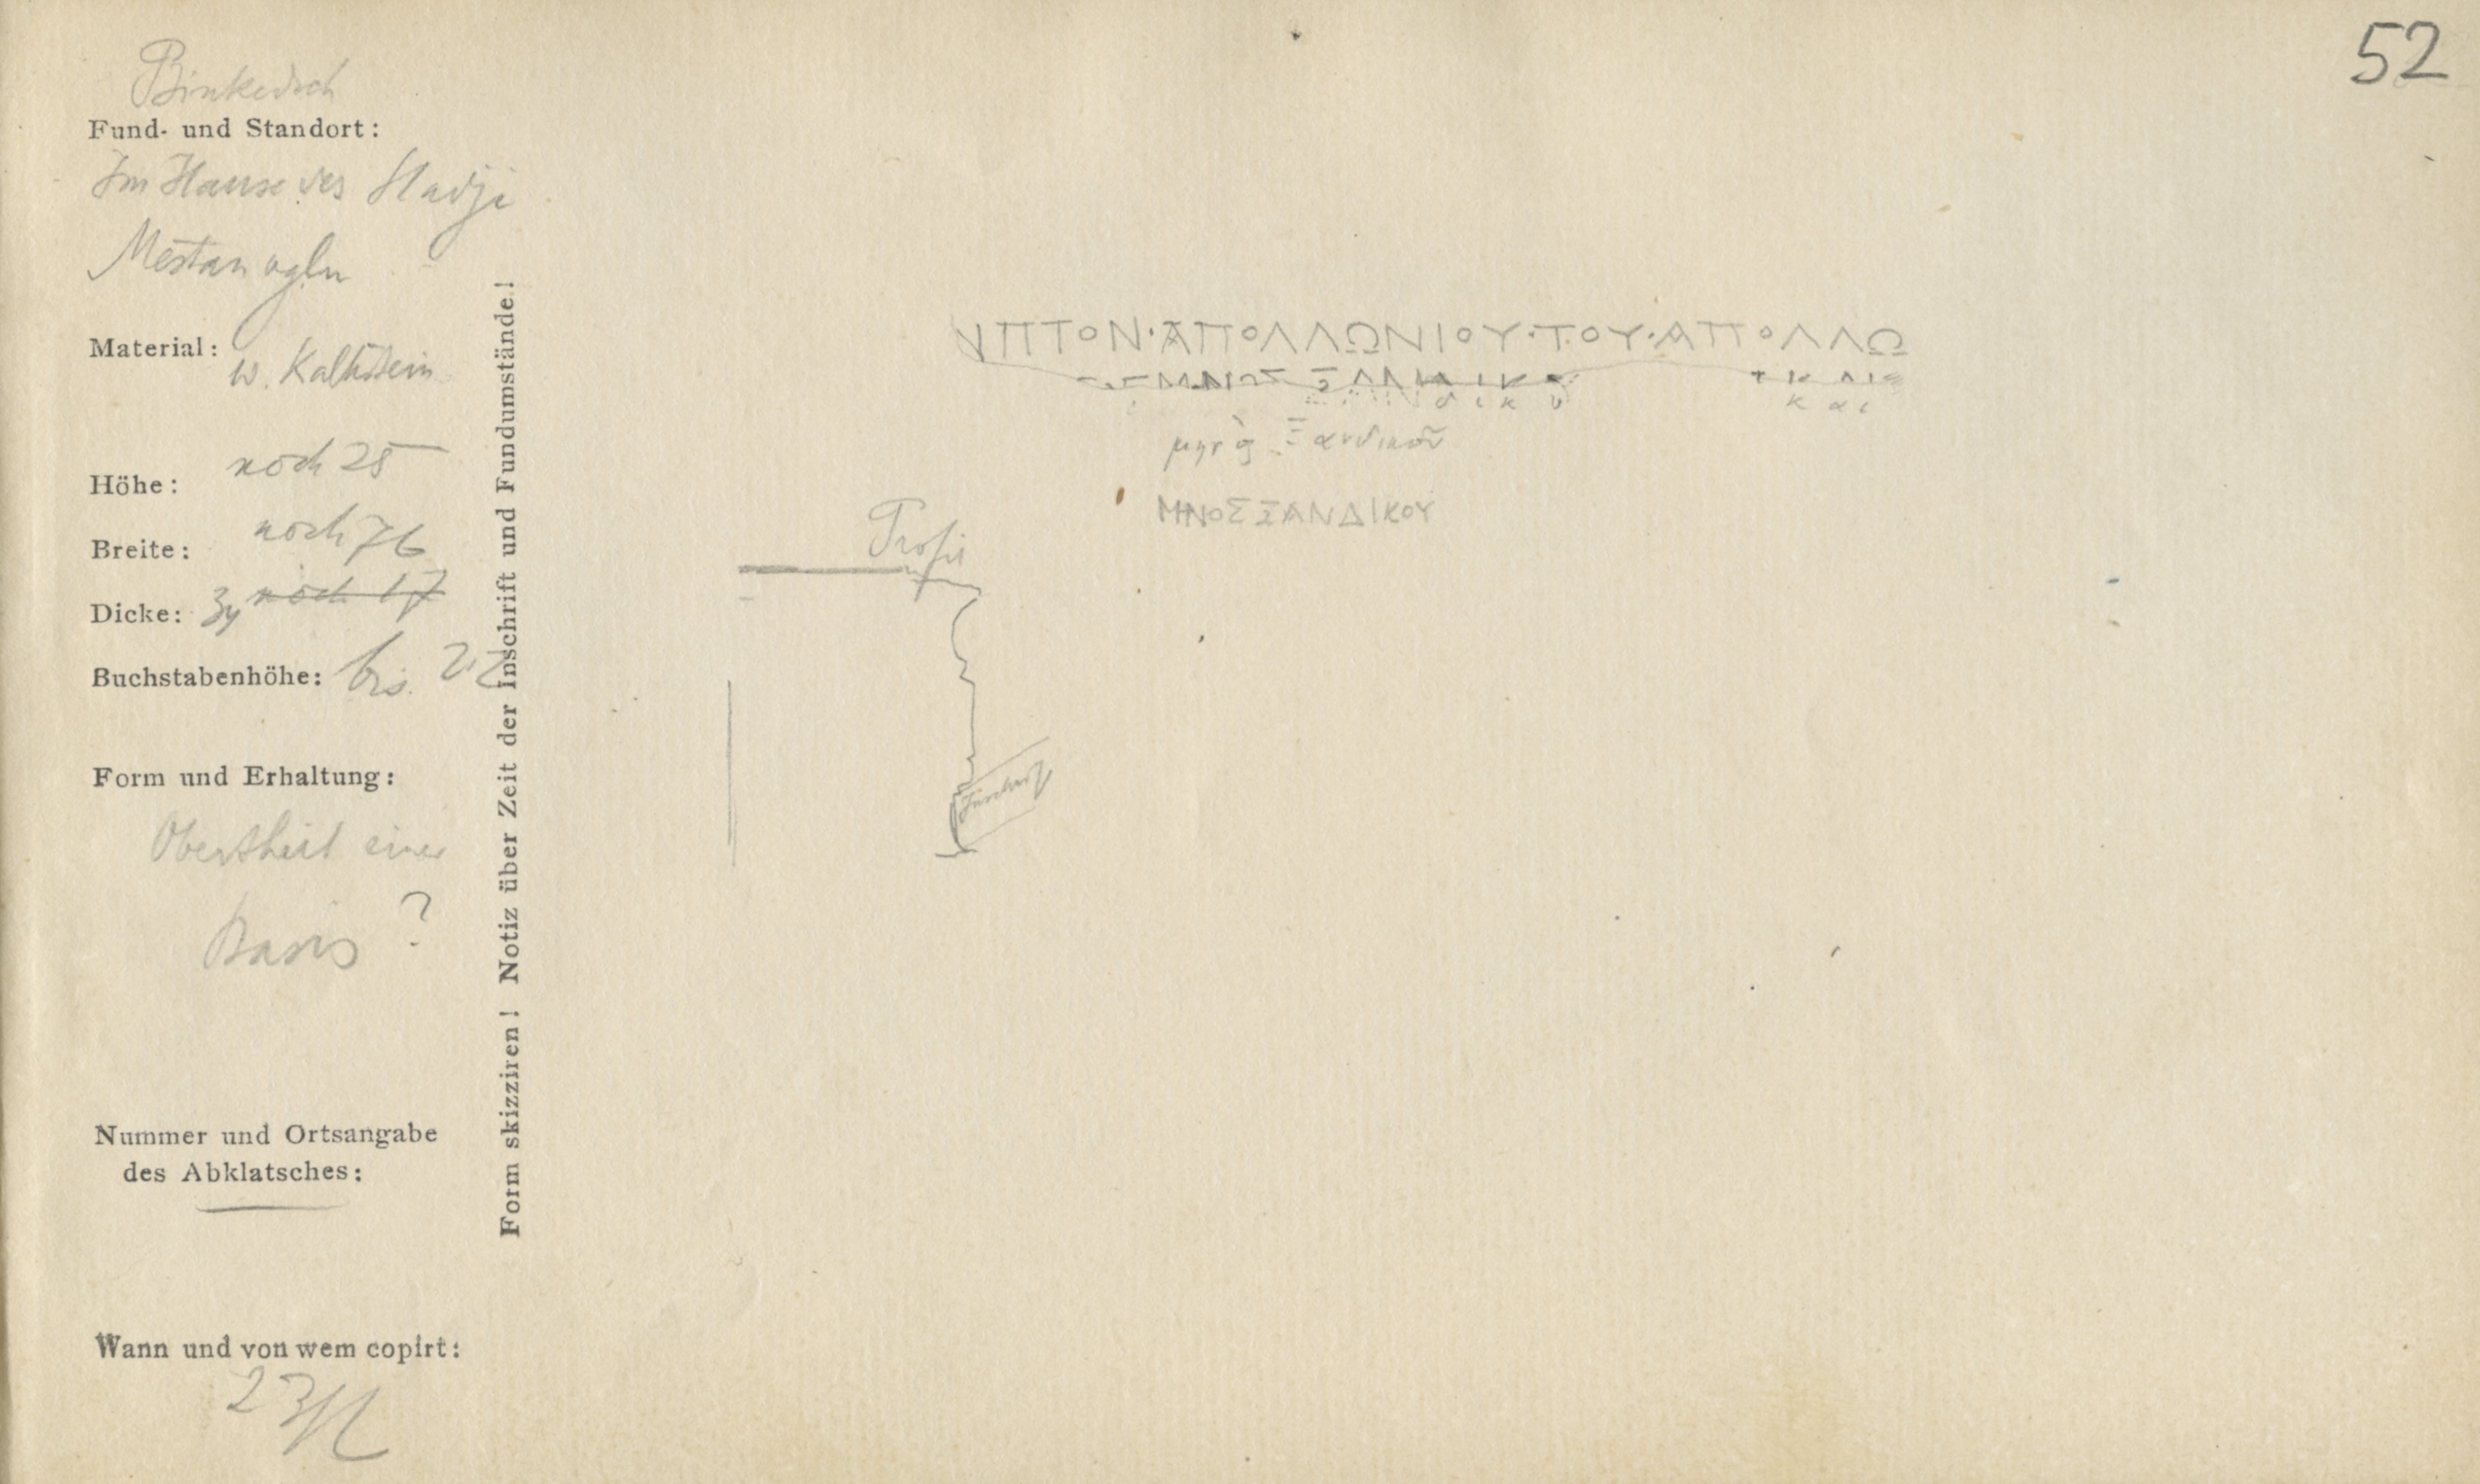 52
Binkedsch
Fund- und Standort:
Im Hause des Hadji
Mestan oglu
Material: w. Kalkstein
Höhe: noch 25
Breite: noch 76
Dicke: noch 17
Buchstabenhöhe: bis 2,2
Form und Erhaltung:
Obertheil einer
Basis ?
Nummer und Ortsangabe
des Abklatsches:
Wann und von wem copirt:
Form skizziren! Notiz über Zeit der Inschrift und Fundumstände!
ΝΠΤΟΝ·ΑΠΟΛΛΩΝΙΟΥ·ΤΟΥ·ΑΠΟΛΛΩ
κ α ι
μηνὸς Ξανδικοῦ
ΜΗΝΟΣΞΑΝΔΙΚΟΥ
Profil
Inschrift